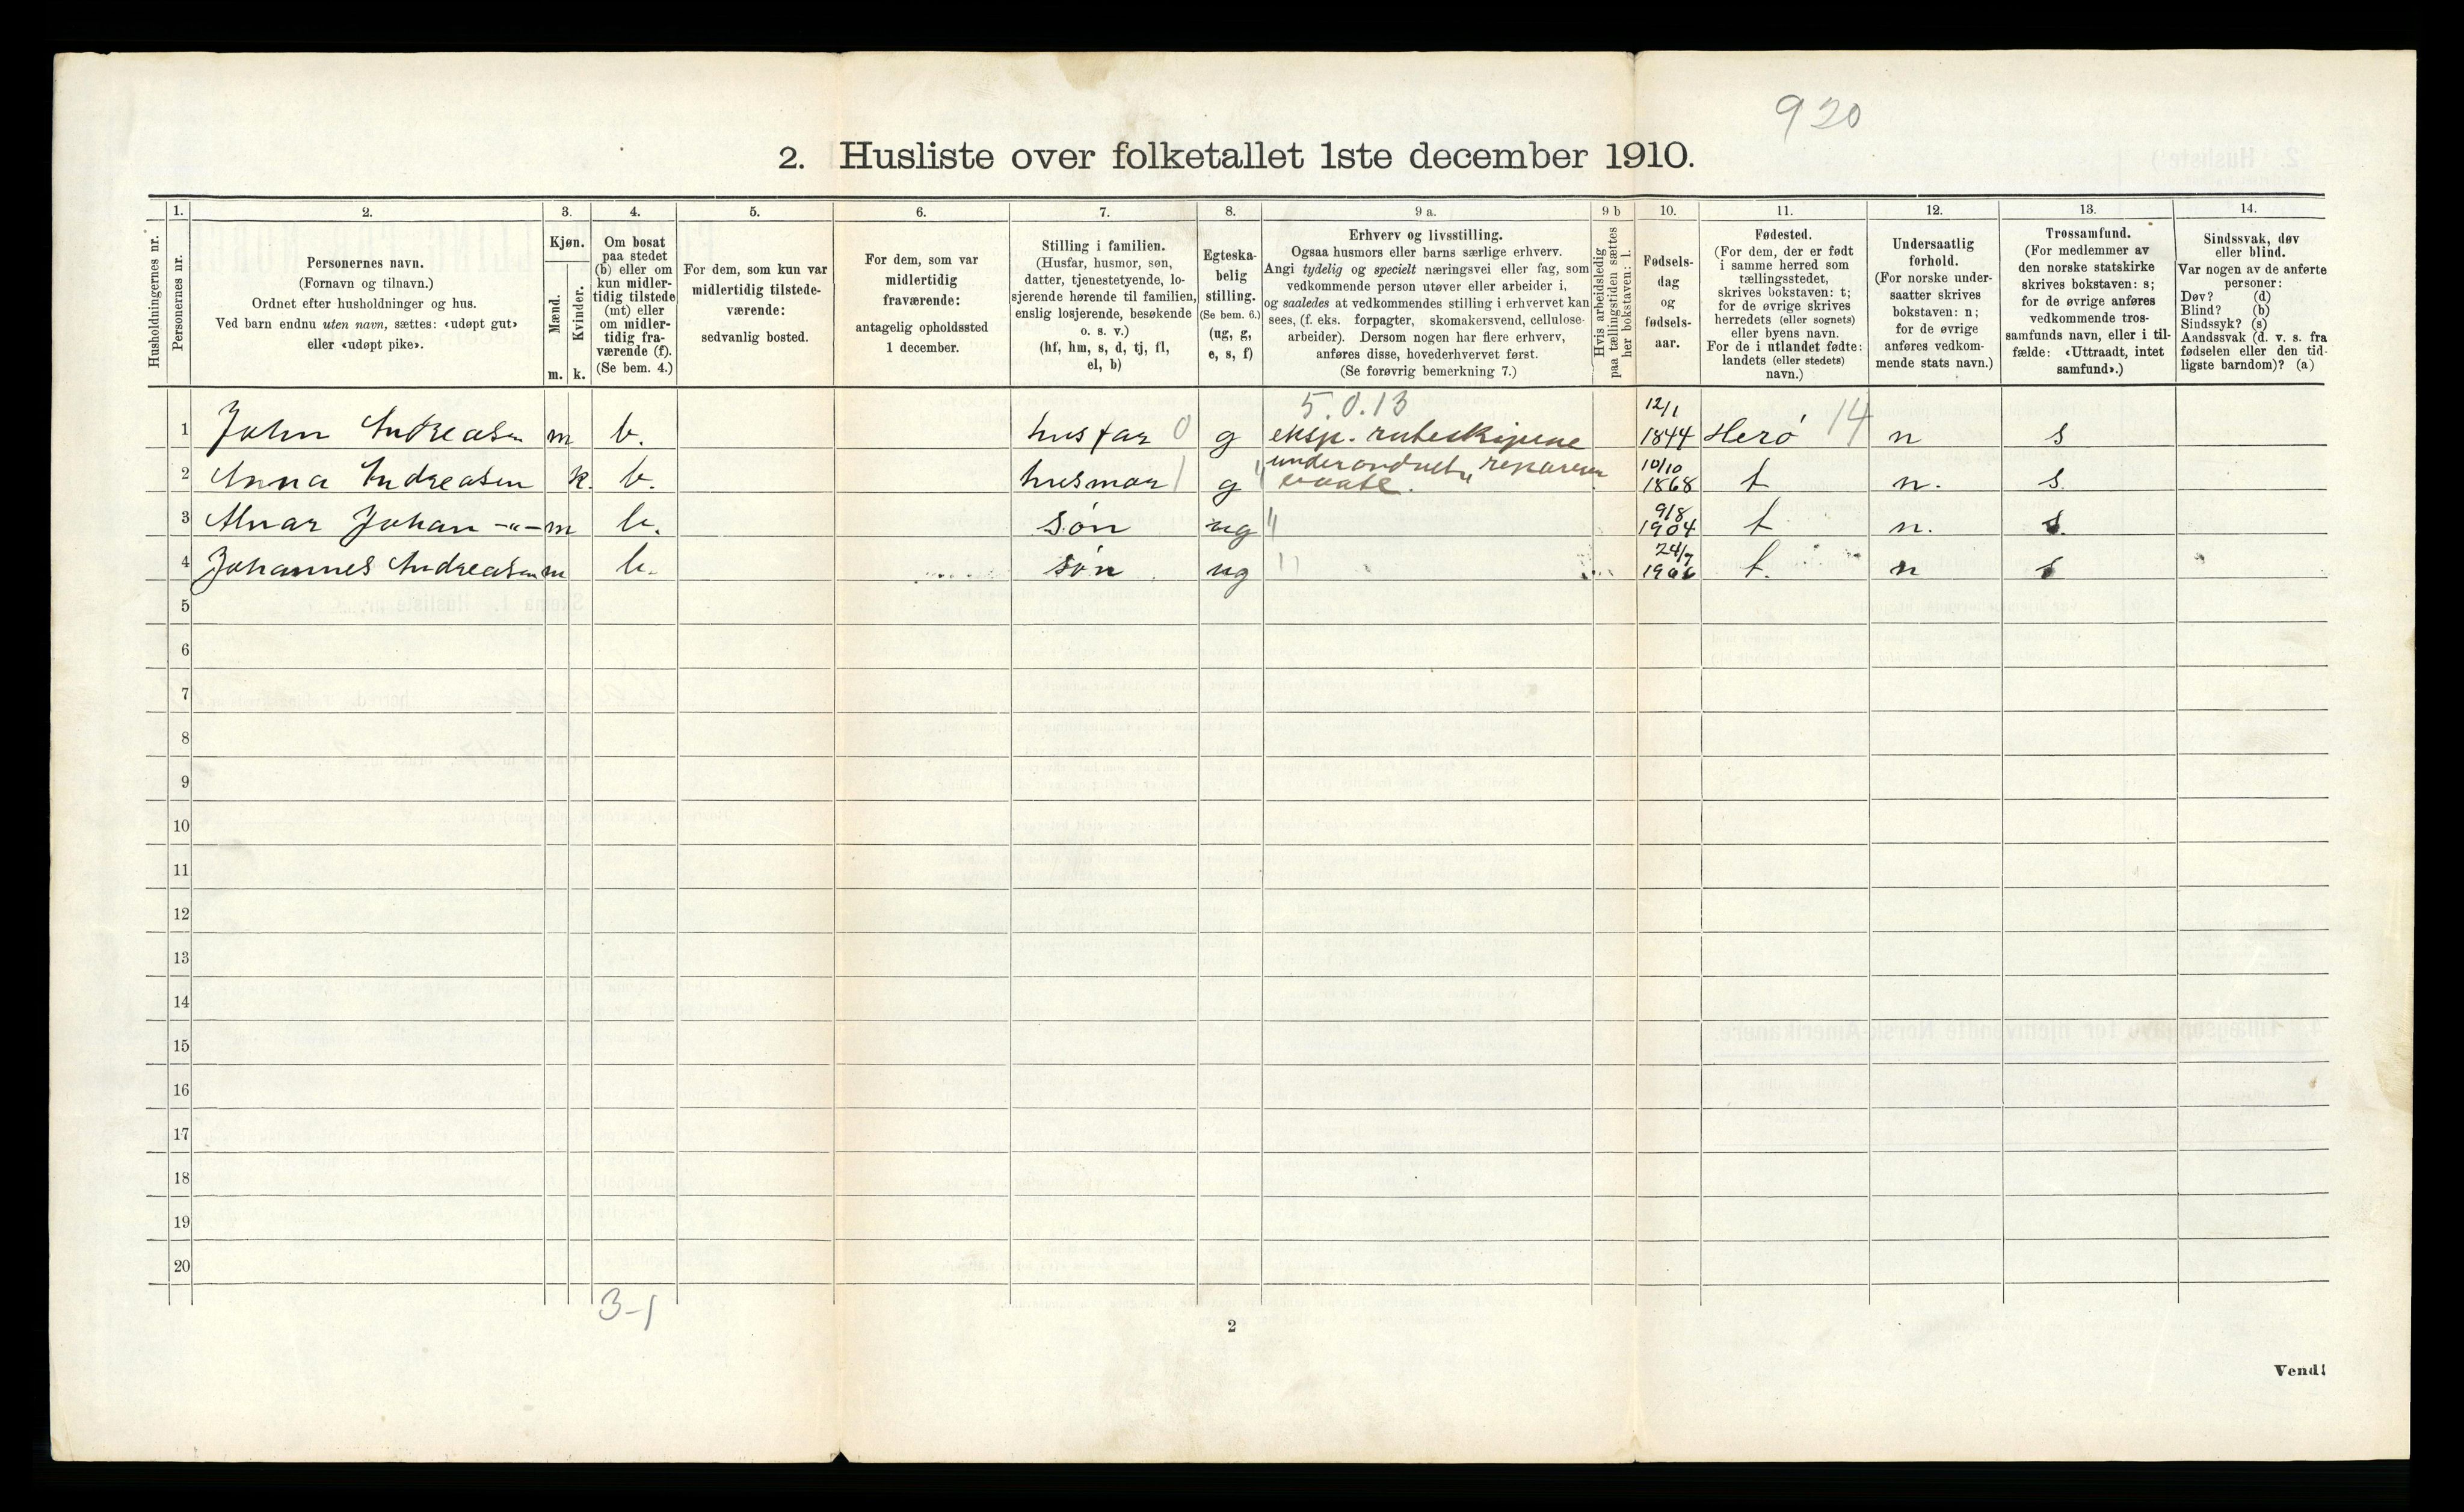 920
2. Husliste over folketallet 1ste december 1910.
Husholdningernes nr.
1.
Personernes nr.
2.
Personernes navn.
(Fornavn og tilnavn.)
Ordnet efter husholdninger og hus.
Ved barn endnu uten navn, sættes: «udøpt gut»
eller «udøpt pike».
3.
Kjøn.
Mænd.
Kvinder.
m. k.
4.
Om bosat
paa stedet
(b) eller om
kun midler-
tidig tilstede
(mt) eller
om midler-
tidig fra-
værende (f).
(Se bem. 4.)
5.
For dem, som kun var
midlertidig tilstede-
værende:
sedvanlig bosted.
6.
For dem, som var
midlertidig
fraværende:
antagelig opholdssted
1 december.
7.
Stilling i familien.
(Husfar, husmor, søn,
datter, tjenestetyende, lo-
sjerende hørende til familien,
enslig losjerende, besøkende
o. s. v.)
(hf, hm, s, d, tj, fl,
el, b)
8.
Egteska-
belig
stilling.
(Se bem. 6.)
(ug, g,
e, s, f)
9 a.
Erhverv og livsstilling.
Ogsaa husmors eller barns særlige erhverv.
Angi tydelig og specielt næringsvei eller fag, som
vedkommende person utøver eller arbeider i,
og saaledes at vedkommendes stilling i erhvervet kan
sees, (f. eks. forpagter, skomakersvend, cellulose-
arbeider). Dersom nogen har flere erhverv,
anføres disse, hovederhvervet først.
(Se forøvrig bemerkning 7.)
9 b
Hvis arbeidsledig
paa tællingstiden sættes
her bokstaven: l.
10.
Fødsels-
dag
og
fødsels-
aar.
11.
Fødested.
(For dem, der er født
i samme herred som
tællingsstedet,
skrives bokstaven: t;
for de øvrige skrives
herredets (eller sognets)
eller byens navn.
For de i utlandet fødte:
landets (eller stedets)
navn.)
12.
Undersaatlig
forhold.
(For norske under-
saatter skrives
bokstaven: n;
for de øvrige
anføres vedkom-
mende stats navn.)
13.
Trossamfund.
(For medlemmer av
den norske statskirke
skrives bokstaven: s;
for de øvrige anføres
vedkommende tros-
samfunds navn, eller i til-
fælde: «Uttraadt, intet
samfund».)
14.
Sindssvak, døv
eller blind.
Var nogen av de anførte
personer:
Døv? (d)
Blind? (b)
Sindssyk? (s)
Aandssvak (d. v. s. fra
fødselen eller den tid-
ligste barndom)? (a)
5.0.13
1 John Andreasen m b. husfar 0 g eksp. ruteskipene 12/1 1844 Herö 14 n s
underordnet,
2 Anna Andreasen k. b. husmor 1 g 10/10 1868 t n. s.
3 Alnar Johan -"- m b. søn ug " 9/8 1904 t n. s.
4 Johannes Andreasen m b. søn ug " 24/7 1906 t. n s
5
6
7
8
9
10
11
12
13
14
15
16
17
18
19
20
3-1
2
Vend!